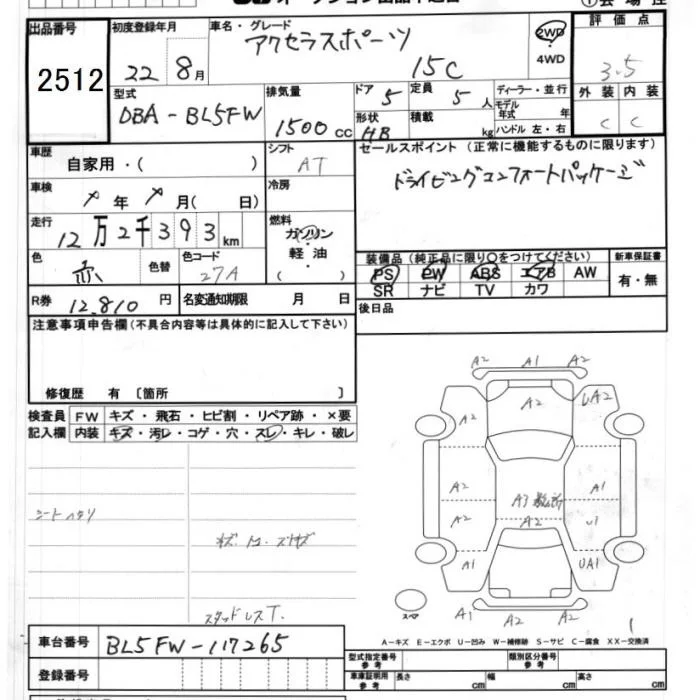 出品番号
2512
初度登録年月
22 8月
車名・グレード
アクセラスポーツ
15C
2WD
4WD
評価点
3.5
外装 内装
C C
型式
DBA-BL5FW
排気量
1500cc
ドア 5
定員 5人
形状 HB
積載 kg
ディーラー・並行
モデル年式 年
ハンドル 左・右
車歴
自家用・( )
シフト
AT
セールスポイント (正常に機能するものに限ります)
ドライビングコンフォートパッケージ
車検
年 月( 日)
冷房
走行
12万2千393km
燃料
ガソリン
軽油
( )
色
赤
色替
色コード
27A
装備品 (純正品に限り○をつけてください)
PS PW ABS エアB AW
SR ナビ TV カワ
新車保証書
有・無
R券 12,810円
名変通知期限 月 日
後日品
注意事項申告欄(不具合内容等は具体的に記入して下さい)
修復歴 有 〔箇所 〕
検査員記入欄
FW キズ・飛石・ヒビ割・リペア跡・×要
内装 キズ・汚レ・コゲ・穴・スレ・キレ・破レ
シートヘタリ
スタッドレスT.
A2 A1 A2
A2 A2 UA2
A2 A1
A3
A2 A2 U1
A1 UA1
スペア
A1 A2 A2
A-キズ E-エクボ U-凹み W-補修跡 S-サビ C-腐食 XX-交換済
車台番号
BL5FW-117265
登録番号
型式指定番号 参考
類別区分番号 参考
車庫証明用 参考
長さ cm
幅 cm
高さ cm